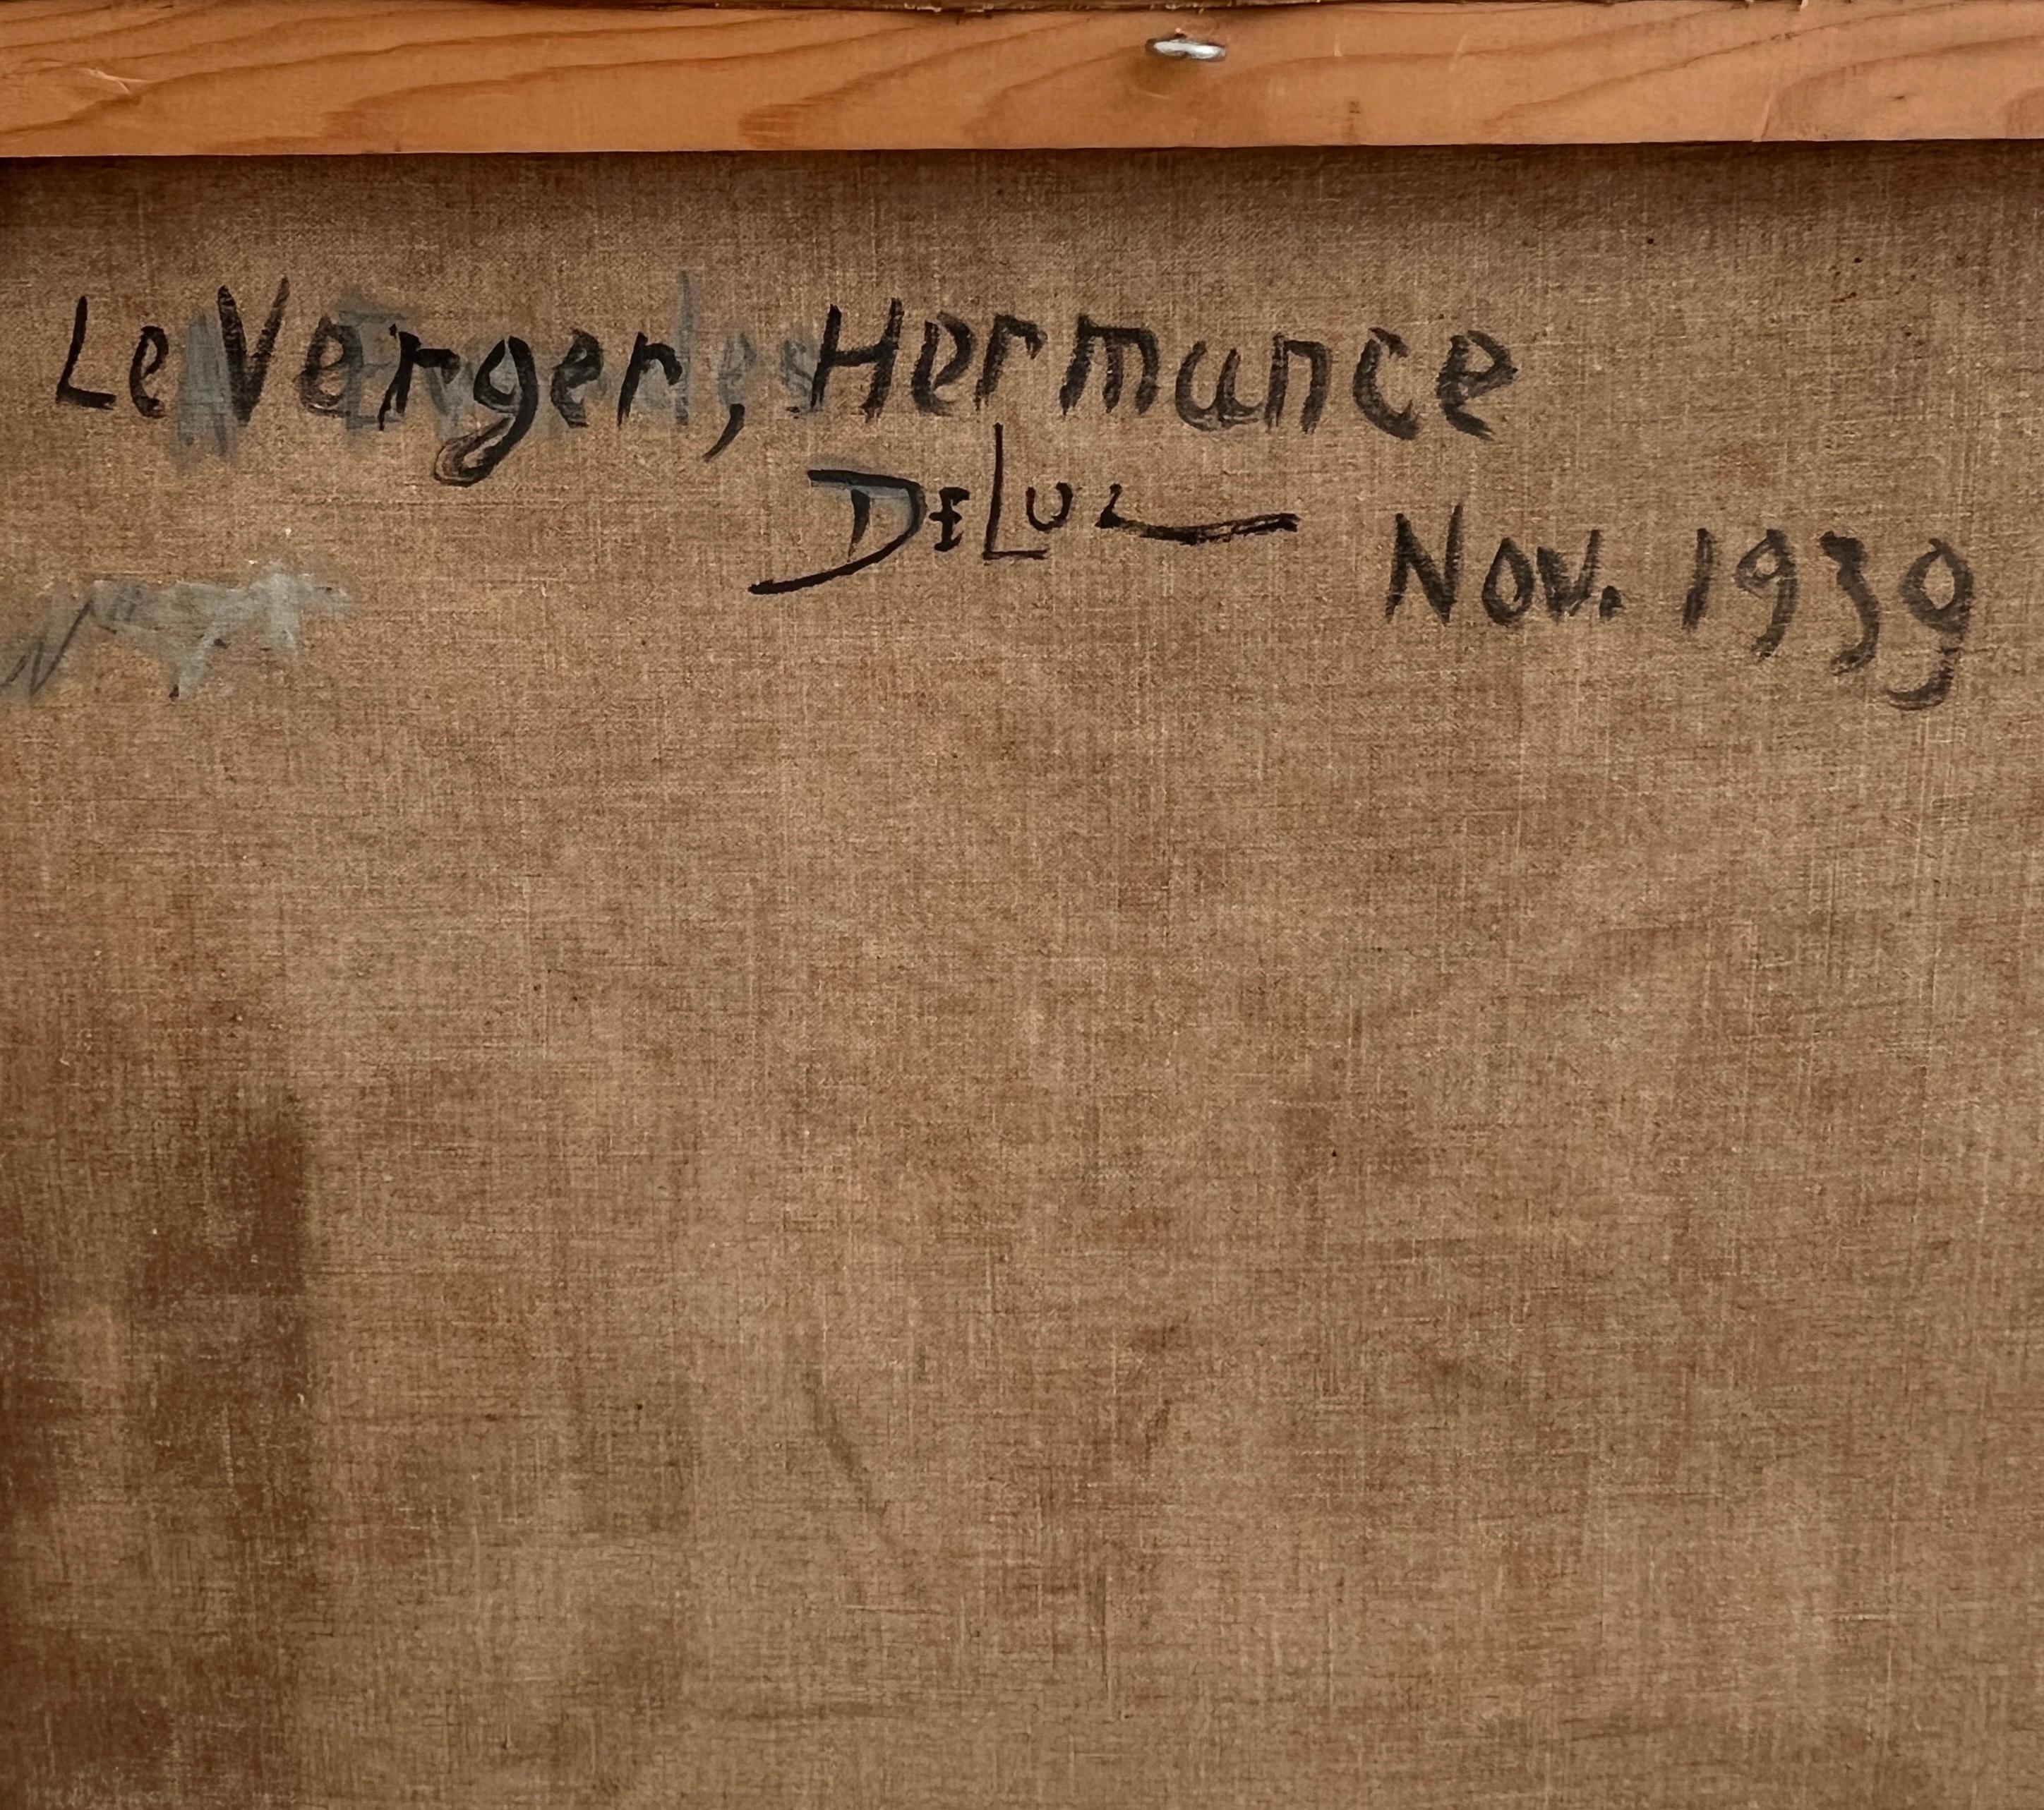 Le Verger, Hermance
DeLuz
Nov. 1939